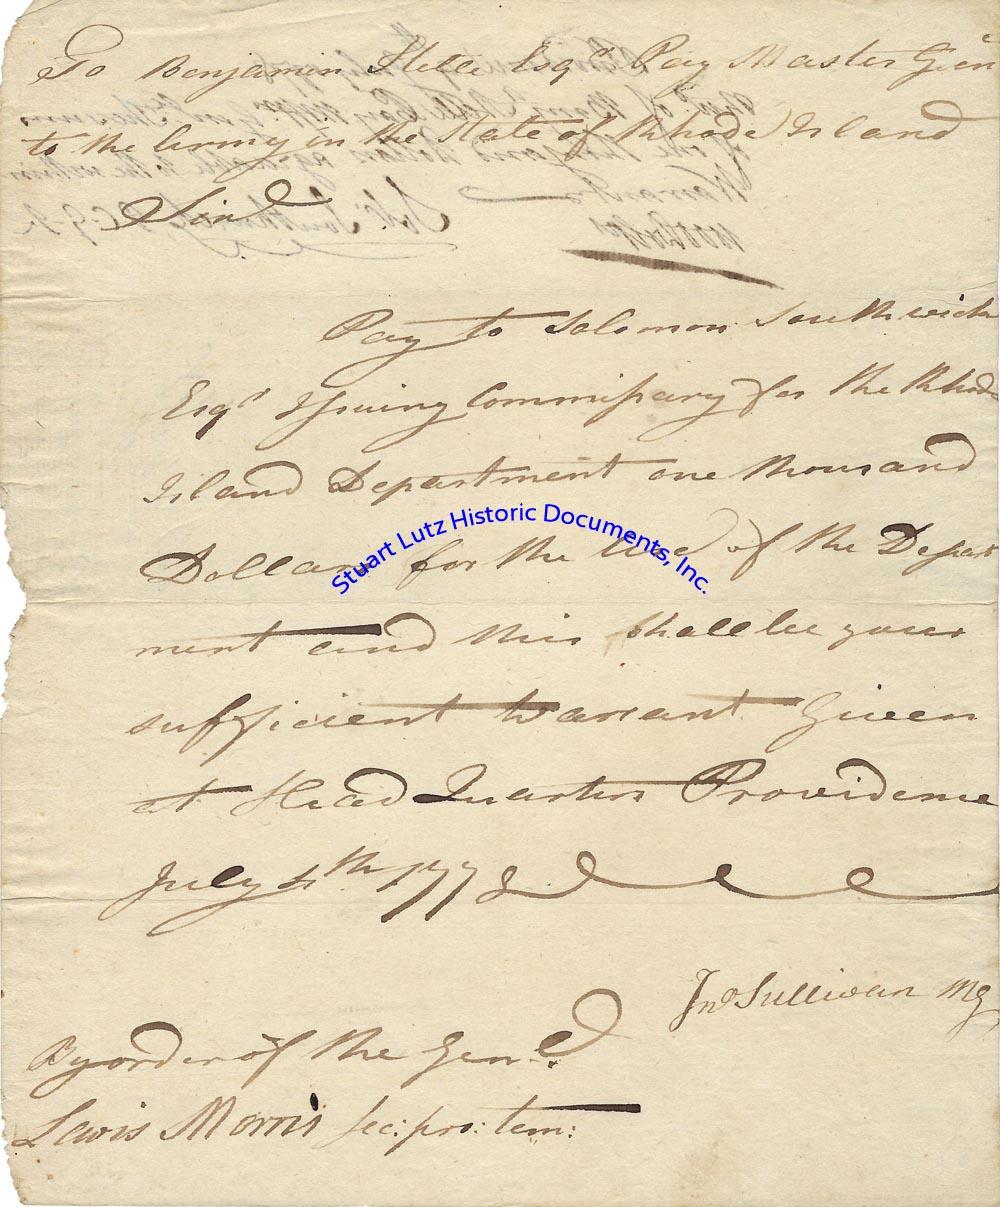 To Benjamin Stelle Esqr Pay Master Genl
to the Army in the State of Rhode Island
Sir
Pay to Solomon Southwick
Esqr Issuing Commissary for the Rhode
Island Department one thousand
Dollars for the Use of the Depart
ment and this shall be your
sufficient warrant Given
at Head Quarters Providence
July 4th 1778
Jno Sullivan MG
By order of the Genl
Lewis Morris Sec: pro: tem:
Stuart Lutz Historic Documents, Inc.